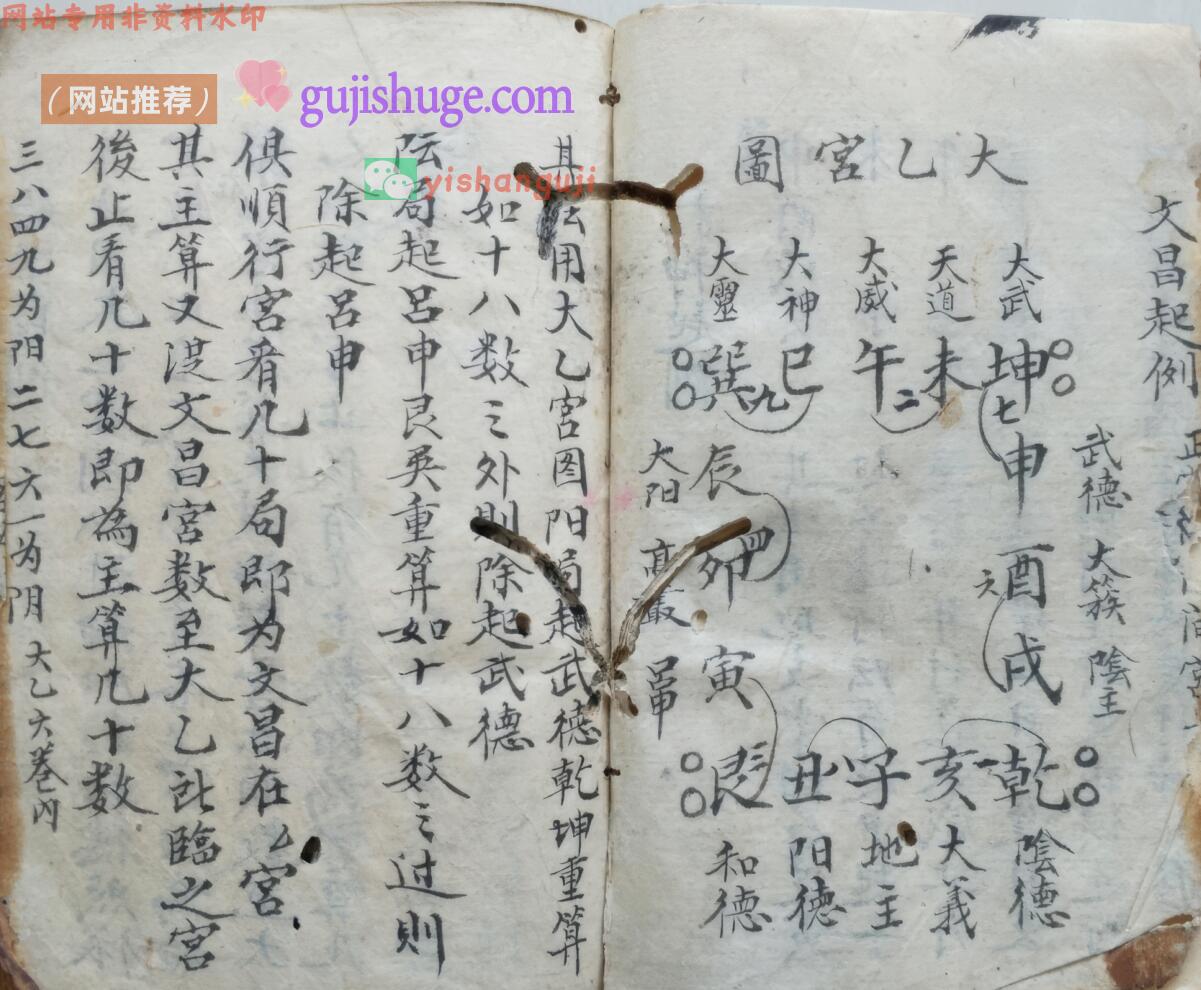 网站专用非资料水印
（网站推荐）
gujishuge.com
yishanguji
文昌起例
大乙宮圖
大武
天道
大威
大神
大靈
坤 未 午 巳 巽
七 二 九
申 辰
酉 卯 四
戌 寅
乾 亥 子 丑 艮
一 八
武德
大簇
陰主
大阳
高叢
呂申
陰德
大義
地主
阳德
和德
其法用大乙宮图阳局起武德乾坤重算
如十八数之外則除起武德
阮局起呂申艮巽重算如十八数之过則
除起呂申
俱順行宮看几十局即为文昌在厶宮
其主算又従文昌宮数至大乙所臨之宮
後止看几十数即為主算几十数
三八四九为阳二七六一为阴 大乙六卷内